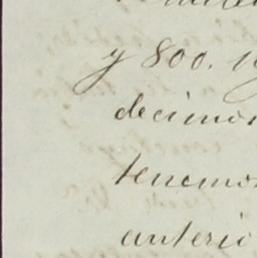 y 800.
decimos
tenemos
anterio